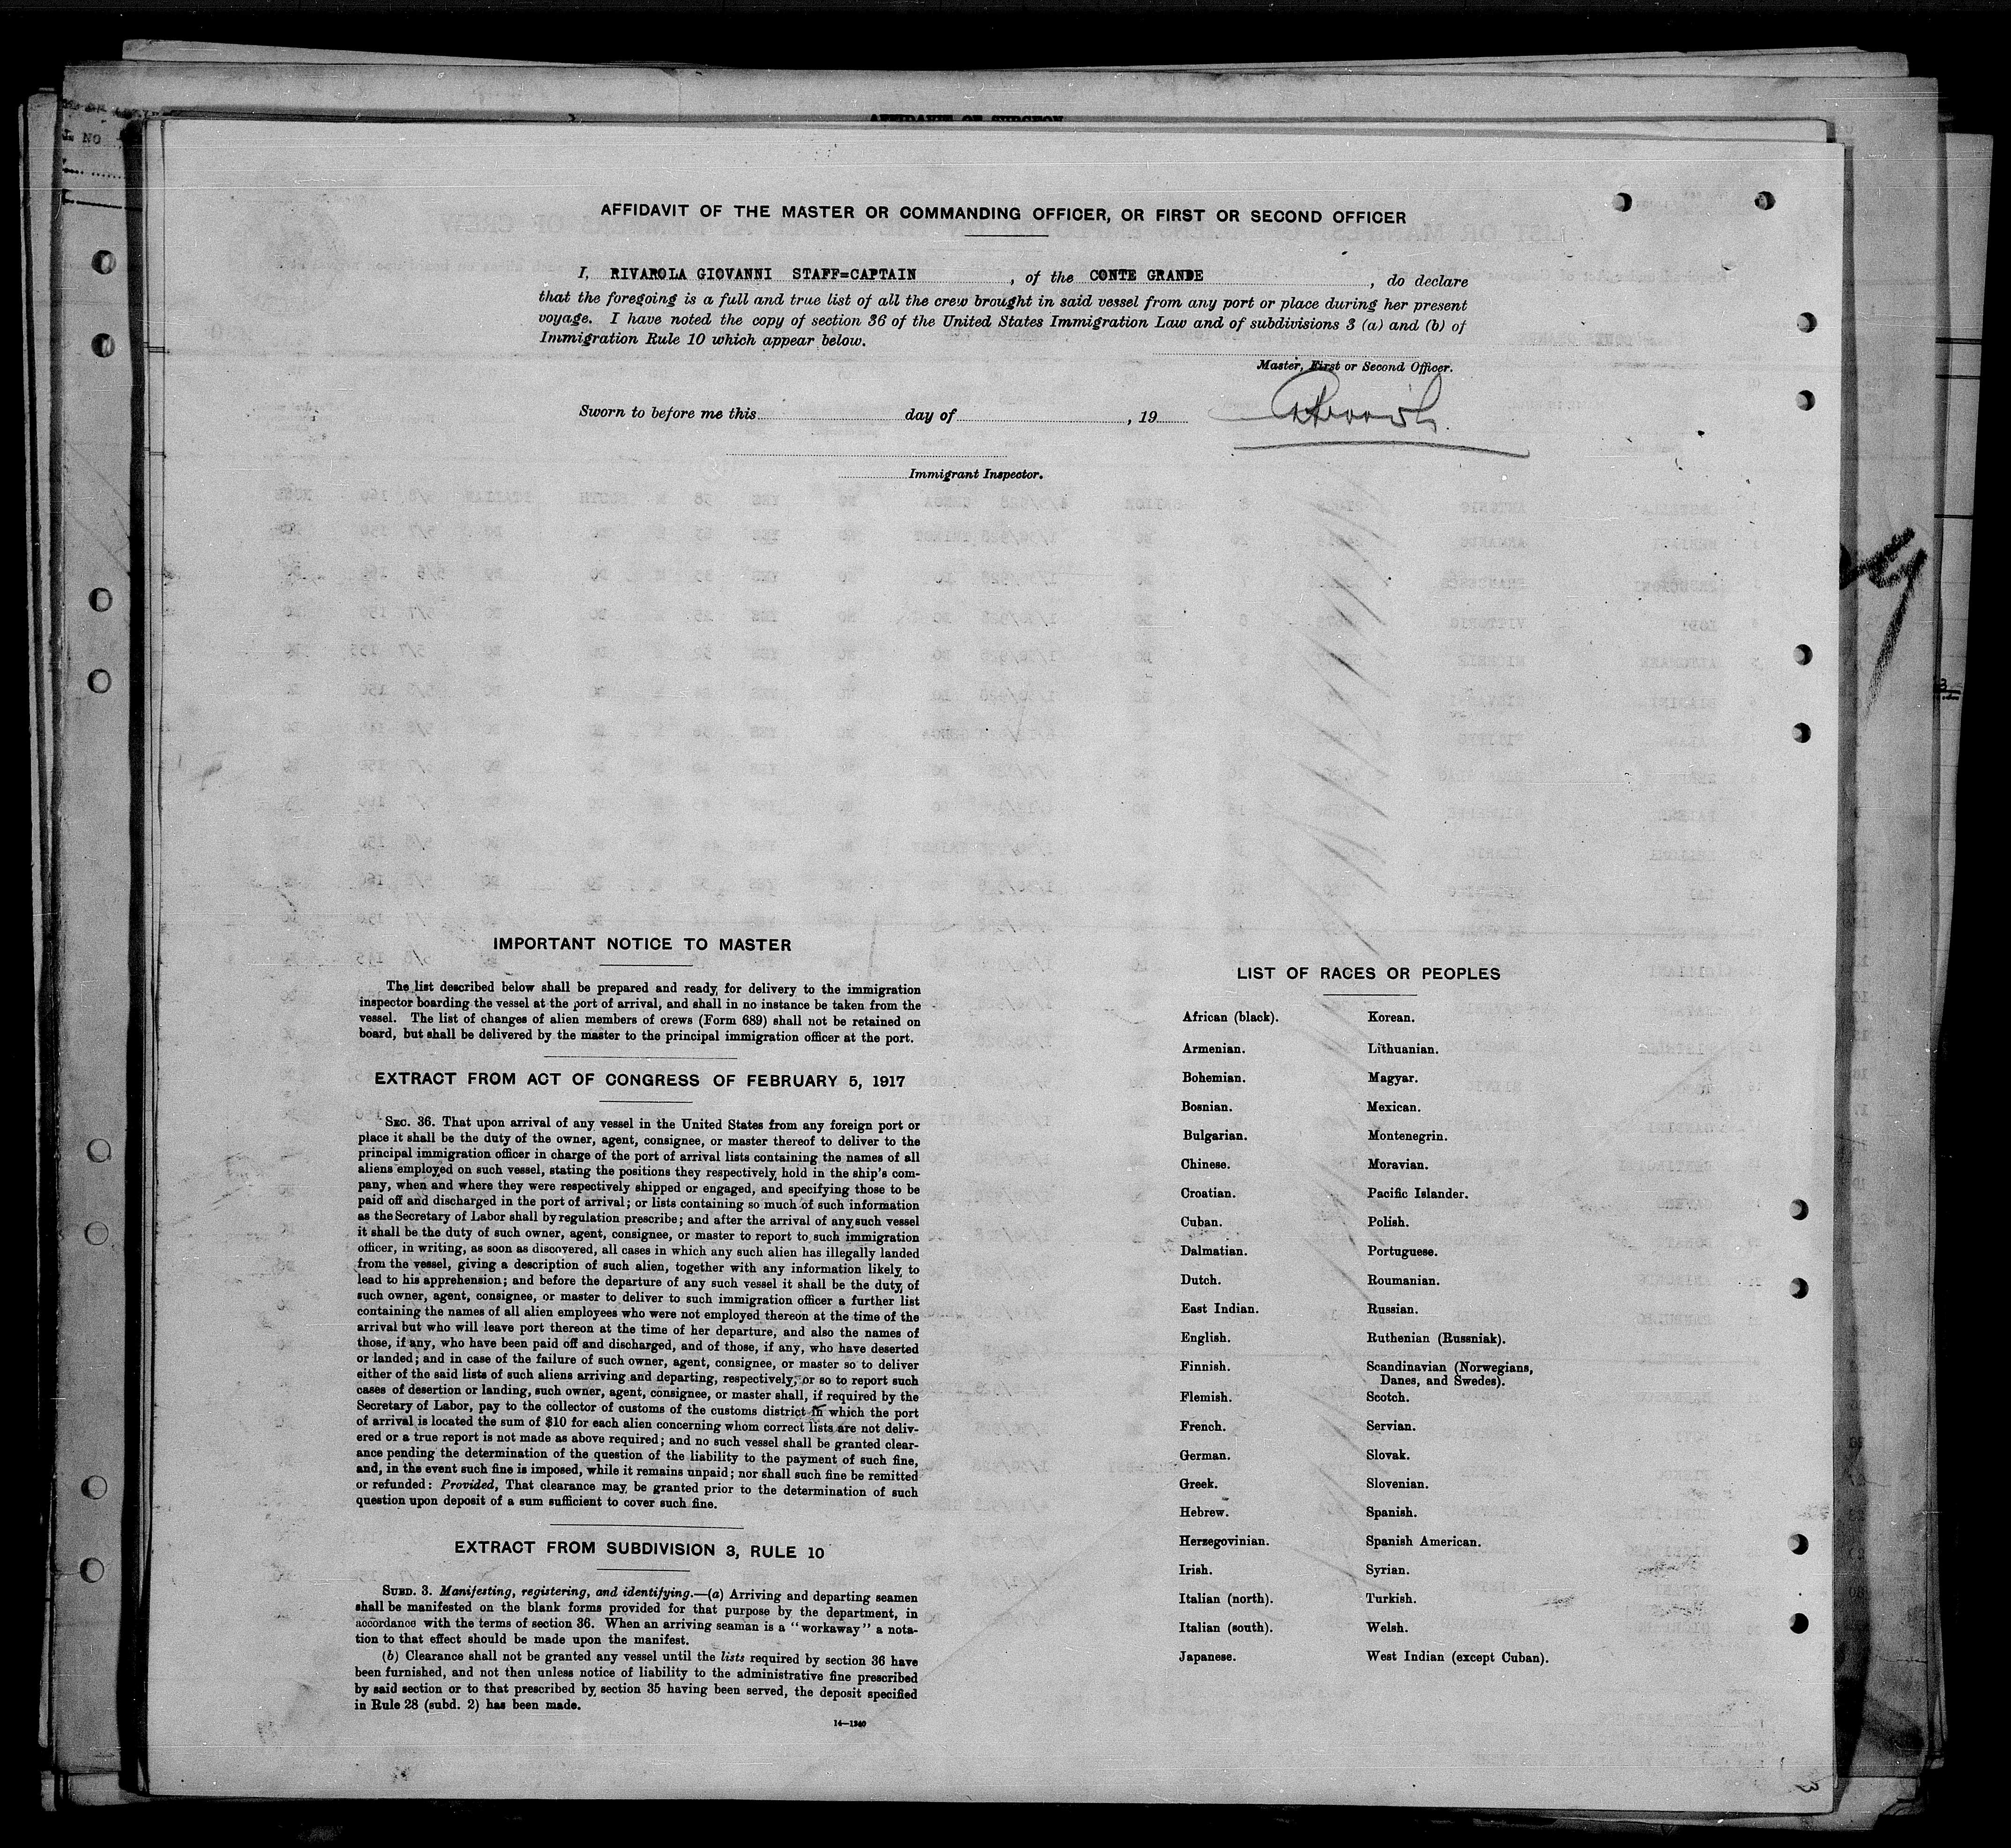 AFFIDAVIT OF THE MASTER OR COMMANDING OFFICER, OR FIRST OR SECOND OFFICER
I, RIVAROLA GIOVANNI STAFF=CAPTAIN, of the CONTE GRANDE, do declare
that the foregoing is a full and true list of all the crew brought in said vessel from any port or place during her present
voyage. I have noted the copy of section 36 of the United States Immigration Law and of subdivisions 3 (a) and (b) of
Immigration Rule 10 which appear below.
Master, First or Second Officer.
Sworn to before me this day of , 19
Immigrant Inspector.
IMPORTANT NOTICE TO MASTER
The list described below shall be prepared and ready, for delivery to the immigration
inspector boarding the vessel at the port of arrival, and shall in no instance be taken from the
vessel. The list of changes of alien members of crews (Form 689) shall not be retained on
board, but shall be delivered by the master to the principal immigration officer at the port.
EXTRACT FROM ACT OF CONGRESS OF FEBRUARY 5, 1917
SEC. 36. That upon arrival of any vessel in the United States from any foreign port or
place it shall be the duty of the owner, agent, consignee, or master thereof to deliver to the
principal immigration officer in charge of the port of arrival lists containing the names of all
aliens employed on such vessel, stating the positions they respectively hold in the ship's com-
pany, when and where they were respectively shipped or engaged, and specifying those to be
paid off and discharged in the port of arrival; or lists containing so much of such information
as the Secretary of Labor shall by regulation prescribe; and after the arrival of any such vessel
it shall be the duty of such owner, agent, consignee, or master to report to such immigration
officer, in writing, as soon as discovered, all cases in which any such alien has illegally landed
from the vessel, giving a description of such alien, together with any information likely to
lead to his apprehension; and before the departure of any such vessel it shall be the duty of
such owner, agent, consignee, or master to deliver to such immigration officer a further list
containing the names of all alien employees who were not employed thereon at the time of the
arrival but who will leave port thereon at the time of her departure, and also the names of
those, if any, who have been paid off and discharged, and of those, if any, who have deserted
or landed; and in case of the failure of such owner, agent, consignee, or master so to deliver
either of the said lists of such aliens arriving and departing, respectively, or so to report such
cases of desertion or landing, such owner, agent, consignee, or master shall, if required by the
Secretary of Labor, pay to the collector of customs of the customs district in which the port
of arrival is located the sum of $10 for each alien concerning whom correct lists are not deliv-
ered or a true report is not made as above required; and no such vessel shall be granted clear-
ance pending the determination of the question of the liability to the payment of such fine,
and, in the event such fine is imposed, while it remains unpaid; nor shall such fine be remitted
or refunded: Provided, That clearance may be granted prior to the determination of such
question upon deposit of a sum sufficient to cover such fine.
EXTRACT FROM SUBDIVISION 3, RULE 10
SUBD. 3. Manifesting, registering, and identifying.—(a) Arriving and departing seamen
shall be manifested on the blank forms provided for that purpose by the department, in
accordance with the terms of section 36. When an arriving seaman is a "workaway" a nota-
tion to that effect should be made upon the manifest.
(b) Clearance shall not be granted any vessel until the lists required by section 36 have
been furnished, and not then unless notice of liability to the administrative fine prescribed
by said section or to that prescribed by section 35 having been served, the deposit specified
in Rule 28 (subd. 2) has been made.
14—1240
LIST OF RACES OR PEOPLES
African (black).
Armenian.
Bohemian.
Bosnian.
Bulgarian.
Chinese.
Croatian.
Cuban.
Dalmatian.
Dutch.
East Indian.
English.
Finnish.
Flemish.
French.
German.
Greek.
Hebrew.
Herzegovinian.
Irish.
Italian (north).
Italian (south).
Japanese.
Korean.
Lithuanian.
Magyar.
Mexican.
Montenegrin.
Moravian.
Pacific Islander.
Polish.
Portuguese.
Roumanian.
Russian.
Ruthenian (Russniak).
Scandinavian (Norwegians,
Danes, and Swedes).
Scotch.
Servian.
Slovak.
Slovenian.
Spanish.
Spanish American.
Syrian.
Turkish.
Welsh.
West Indian (except Cuban).